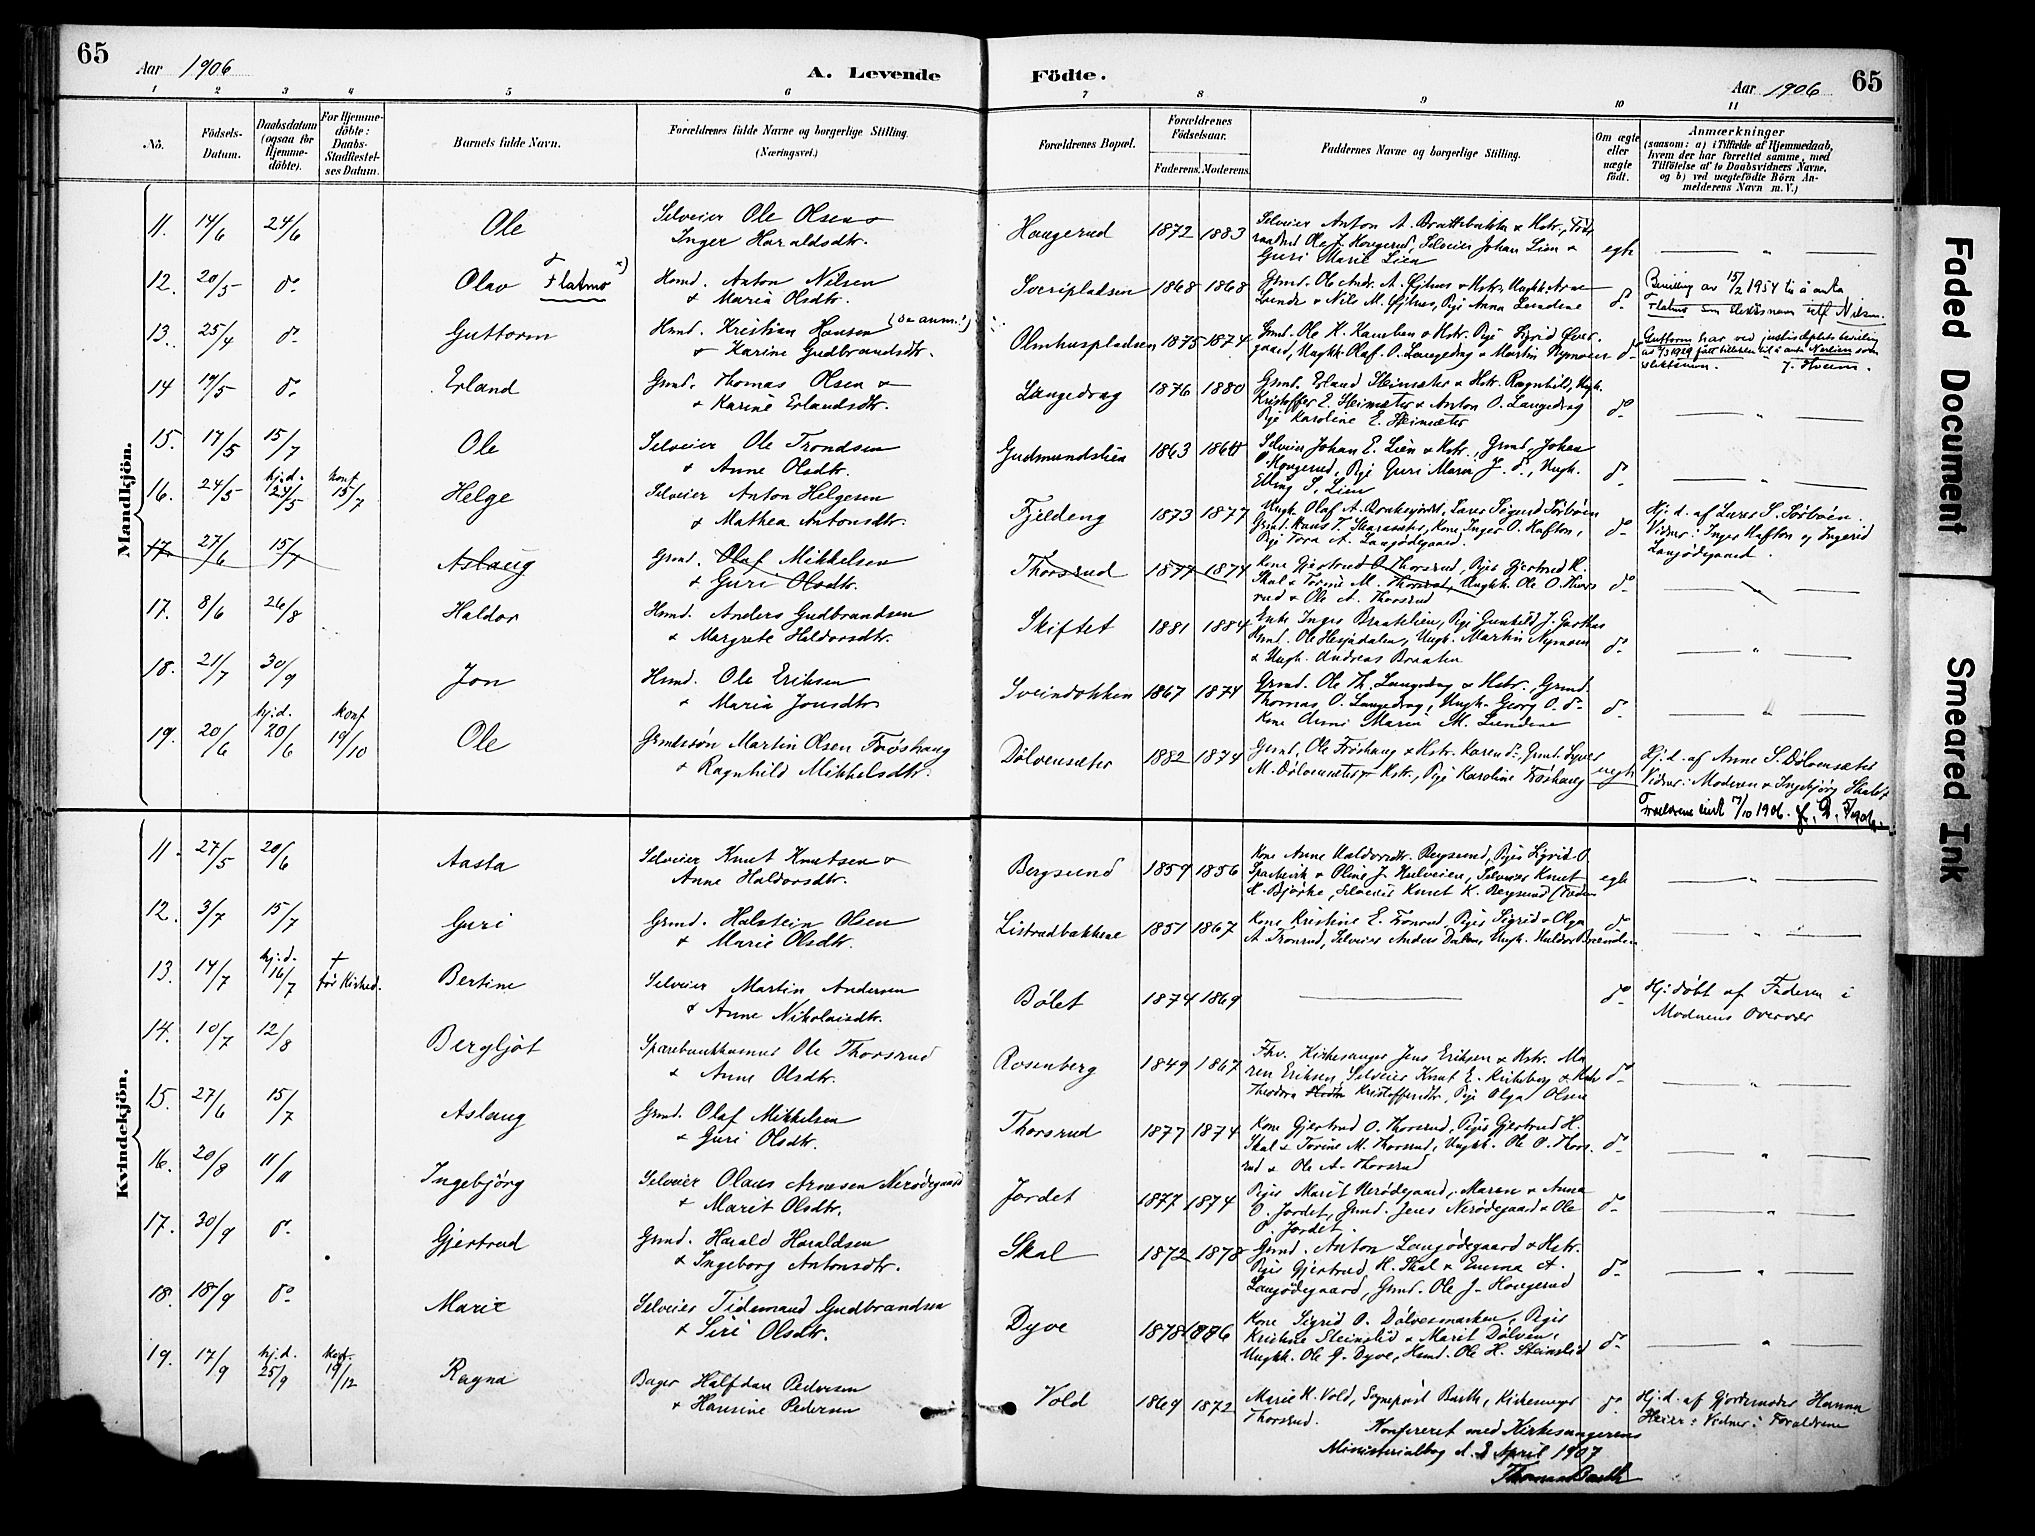 65
Aar 1906
A. Levende Födte.
Aar 1906
65
1 2 3 4 5 6 7 8 9 10 11
No.
Födsels-Datum.
Daabsdatum (ogsaa för Hjemmedöbte).
For Hjemmedöbte: Daabs-Stadfæstelses Datum.
Barnets fulde Navn.
Forældrenes fulde Navne og borgerlige Stilling. (Næringsvei.)
Forældrenes Bopæl.
Forældrenes Födselsaar.
Faderens. Moderens.
Faddernes Navne og borgerlige Stilling.
Om ægte eller uægte födt.
Anmærkninger
(saasom: a) i Tilfælde af Hjemmedaab, hvem der har forrettet samme, med Tilföielse af to Daabsvidners Navne, og b) ved uægtefödte Börn Anmelderens Navn m. V.)
Mandkjön.
11. 14/6 24/6 Ole
Selveier Ole Olsen &
Inger Haraldsdtr.
Haugerud 1872 1883
Selveier Anton A. Brattebakke & Kstr.,
Ole J. Haugerud, Selveier Johan Lien &
Guri Marie Lien
egte
12. 20/5 do Olav Flatmo x)
Hsmd. Anton Nilsen
& Maria Olsdtr.
Sveripladsen 1868 1868
do
Bevilling av 15/2 1954 til å anta
Flatmo som slektsnavn istf Nilsen.
13. 25/4 do Guttorm
Hsmd. Kristian Hansen (se anm.!)
& Karine Gudbrandsdtr.
Olmhuspladsen 1875 1874
gaard, Ungk. Olaf O. Langedrag & Martin Nymoen
do
Guttorm har ved justisdeptets bevilling
av 7/3 1929 fått tillatelse til å anta Nerlien som
slektsnavn. J. Hveem.
14 19/5 do Erland
Grmd. Thomas Olsen &
& Karine Erlandsdtr.
Langedrag 1876 1880
Grmd. Erland Heimsæter & Kstr. Ragnhild, Ungk.
Kristoffer E. Heimsæter & Anton O. Langedrag
Pige Karoline E. Heimsæter
do
15. 17/5 15/7 Ole
Selveier Ole Trondsen
& Anne Olsdtr.
Gudmundslien 1863 1860
Selveier Johan E. Lien & Kstr., Grmd. Johan
O. Haugerud, Pige Guri Marie J. do, Ungk.
Elling S. Lien
do
16. 24/5 hj.d. 24/5 konf 15/7 Helge
Selveier Anton Helgesen
& Mathea Antonsdtr.
Fjeldeng 1873 1877
Grmd. Hans T. Skarasæter, Kone Inger O. Hafton,
Pige Tora A. Langödegaard.
do
Hj. d. af Lars S. Sörböen.
Vidner: Inger Hafton og Ingerid
Langödegaard.
17. 27/6 15/7 Aslaug
Grmd. Olaf Mikkelsen
& Guri Olsdtr.
Thorsrud 1877 1874
Kone Gjertrud O. Thorsrud, Pige Gjertrud H.
Skal & Torine M. Thorsrud, Ungkk. Ole O. Thors
rud & Ole A. Thorsrud
do
17. 8/6 26/8 Haldor
Hsmd. Anders Gudbrandsen
& Margrete Haldorsdtr.
Skiftet 1881 1884
Enke Inger Braatelien, Pige Gunhild J.
Hsmd. Ole Hesjedalen, Ungk. Martin Nymoen
& Ungk. Andreas Braaten
do
18. 21/7 30/9 Jon
Hsmd. Ole Eriksen
& Maria Jonsdtr
Sveindokken 1867 1874
Grmd. Ole Th. Langedrag & Kstr. Grmd.
Thomas O. Langedrag, Ungk. Georg O. do
Kone Anne Maria M. Lundene
do
19. 20/6 hj.d. 20/6 konf 19/10 Ole
Grmdssön Martin Olsen Fröshaug
& Ragnhild Mikkelsdtr.
Dölvensæter 1882 1874
Grmd. Ole Fröshaug & Kstr. Karen do, Grmd. Syver
M. Dölvensæter & Kstr., Pige Karoline Fröshaug
uegte
Hj. d. af Anne S. Dölvensæter
Vidner: Moderen & Ingebjörg
Forældrene viet 7/10 1906.
Kvindekjön.
11. 27/5 20/6 Aasta
Selveier Knut Knutsen &
Anne Haldorsdtr.
Bergsund 1859 1856
Kone Anne Haldorsdtr. Bergsund, Pige Sigrid O.
& Oline J. Hulveien, Selveier Knut
K. Björke, Selveier Knut K. Bergsund (Faderen
egte
12. 3/7 15/7 Guri
Grmd. Halstein Olsen
& Marie Olsdtr.
Listrudbakkene 1851 1867
Kone Kristine E. Tronrud, Pige Sigrid & Olga
A. Tronrud, Selveier Anders Dalen, Ungk. Haldor
do
13. 14/7 hj.d. 16/7 † för Kirked. Bertine
Selveier Martin Andersen
& Anne Nikolaisdtr.
Bölet 1874 1869
do
Hj. döbt af Faderen i
Moderens Overvær
14. 10/7 12/8 Bergljot
Sparebankkasserer Ole Thorsrud
& Anne Olsdtr.
Rosenberg 1849 1867
Fhv. Kirkesanger Jens Eriksen & Kstr. Ma
ren Eriksen, Selveier Knut E. Kirkeberg & Kstr
Theodora Kristoffersdtr, Pige Olga Olsen
do
15. 27/6 15/7 Aslaug
Grmd. Olaf Mikkelsen
& Guri Olsdtr.
Thorsrud 1877 1874
Kone Gjertrud O. Thorsrud, Pige Gjertrud H.
Skal & Torine M. Thorsrud, Ungkk. Ole O. Thors
rud & Ole A. Thorsrud
do
16. 20/8 11/11 Ingebjörg
Selveier Olaus Arnesen Nerödegaard
& Marit Olsdtr.
Jordet 1877 1874
Pige Marit Nerödegaard, Maren & Anna
O. Jordet, Grmd. Jens Nerödegaard & Ole
O. Jordet.
do
17. 30/9 do Gjertrud
Grmd. Harald Haraldsen
& Ingeborg Antonsdtr.
Skal 1872 1878
Grmd. Anton Langödegaard & Kstr.
Pige Gjertrud H. Skal & Emma A.
Langödegaard, Grmd. Ole J. Haugerud
do
18. 18/9 do Marie
Selveier Tidemand Gudbrandsen
& Siri Olsdtr.
Dyve 1878 1876
Kone Sigrid O. Dölvesmarken, Pige
Kristine Steinslid & Marit Dölven,
Ungkk. Ole G. Dyve, Hsmd. Ole H. Steinslid
do
19. 17/9 hj.d. 25/9 konf. 19/12 Ragna
Bager Halfdan Pedersen
& Hansine Pedersen
Vold 1869 1872
Marie K. Vold, Sogneprest Barth, Kirkesanger
Thorsrud.
do
Hj. d. af Gjordemoder Hanna
Heier: Vidner: Forældrene
Konfereret med Kirkesangerens
Ministerialbog d. 3 April 1907
Thomas Barth
Faded Document
Smeared Ink